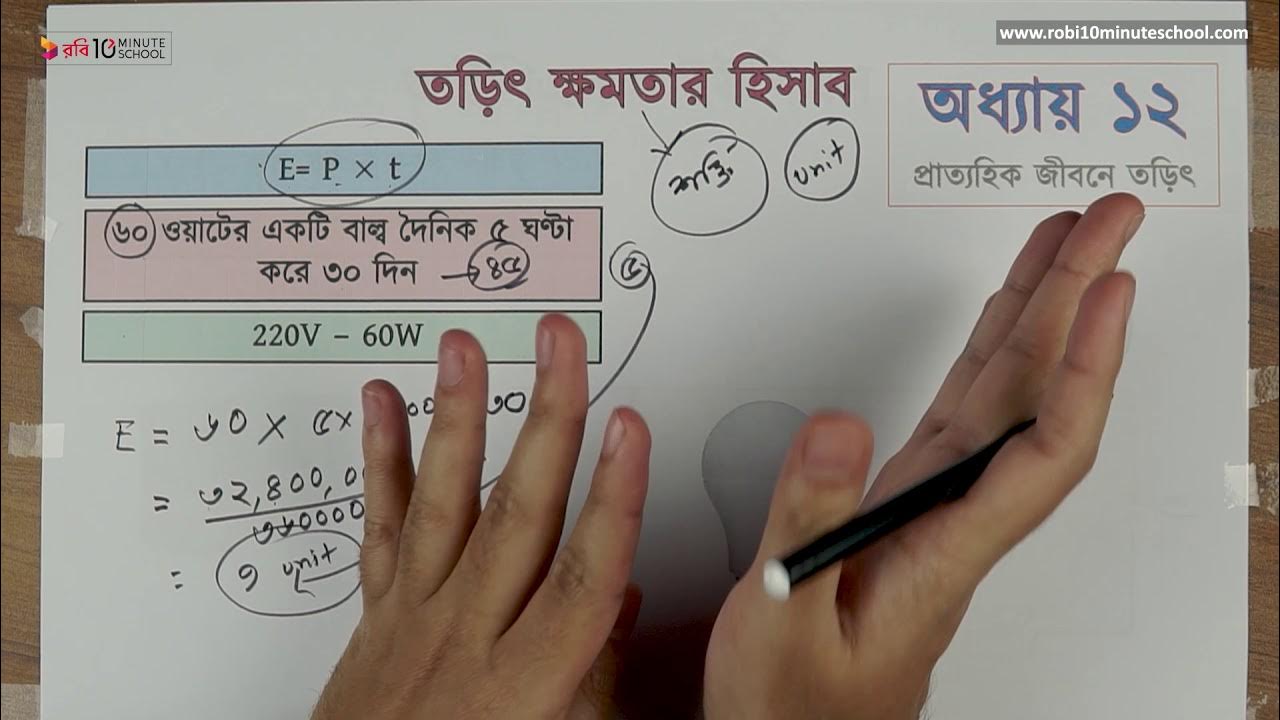 রবি 10 MINUTE SCHOOL
www.robi10minuteschool.com
তড়িৎ ক্ষমতার হিসাব
অধ্যায় ১২
প্রাত্যহিক জীবনে তড়িৎ
E= P × t
শক্তি
unit
৬০ ওয়াটের একটি বাল্ব দৈনিক ৫ ঘণ্টা
করে ৩০ দিন → ৪৫
৫
220V – 60W
E = ৬০ × ৫ ×
= ৩২,৪০০,
৩৬০০০০
= ৯ unit